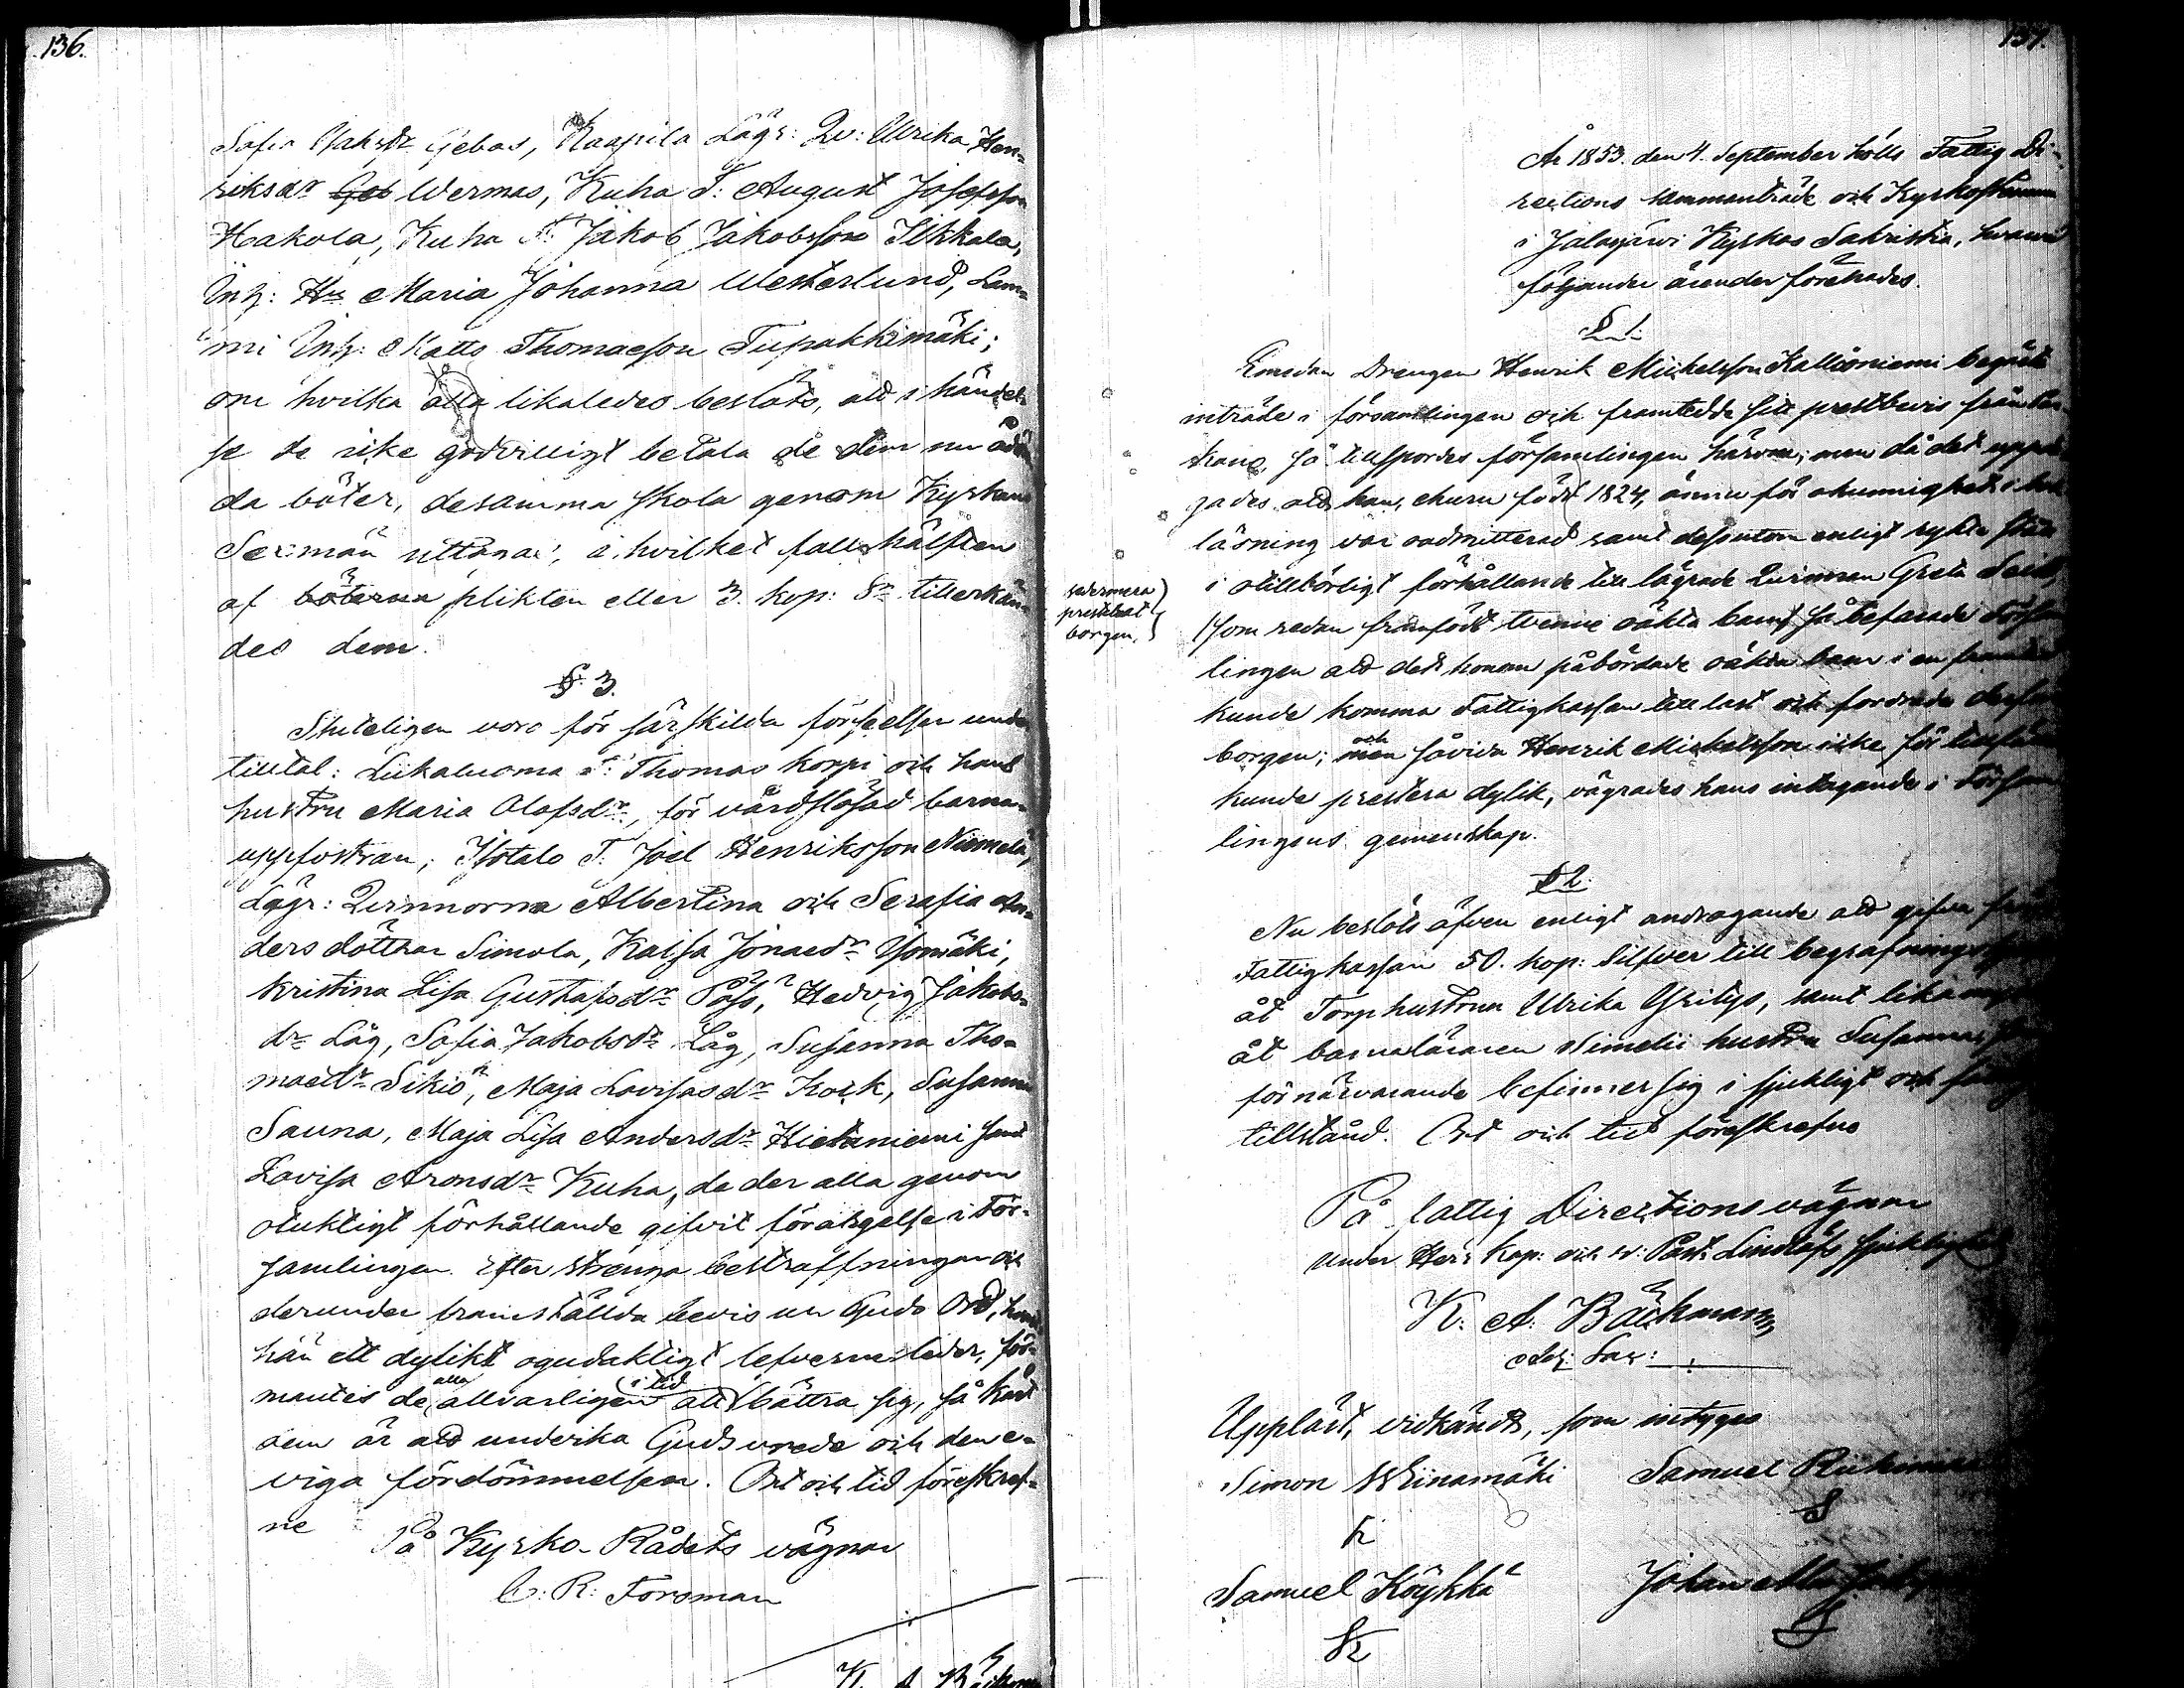 136.
Sofia Isaksdr Gebas, Kaapila Lägr: Qv: Ulrika Hen-
riksdr Geb Wermas, Kuha T: August Josefsson
Hakola, Kuha T: Jakob Jakobsson Ilkkala,
Inh: Hu Maria Johanna Westerlund, Lam-
mi Inh: Matts Thomasson Tupakkimäki;
om hvilka alla likaledes beslöts, att i händel-
se de icke godvilligt betala de dem nu ådöm-
da böter, desamma skola genom Kyrkans
Sexmän uttagas, i hvilket fall hälften
af böterna plikten eller 3. kop: Sr tillerkän-
des dem.
§. 3.
Sluteligen voro för särskilda förseelser under
tilltal: Liikaluoma T: Thomas Korpi och hans
hustru Maria Olofsdr, för vårdslösad barna-
uppfostran, Isotalo T: Joel Henriksson Niemelä,
Lägr: Qvinnorna Albertina och Serafia An-
ders döttrar Simola, Kaisa Jonaedr Isomäki,
Kristina Lisa Gustafsdr Påss, Hedvig Jakobs-
dr Låg, Sofia Jakobsdr Låg, Susanna Tho-
maedr Sikiö, Maja Lovisasdr Kock, Susanna
Sauna, Maja Lisa Andersdr Hietaniemi samt
Lovisa Aronsdr Kuha, de der alla genom
otuktigt förhållande gifvit förargelse i För-
samlingen. Efter stränga bestraffningar och
derunder framställda bevis ur Guds Ord, hvart-
hän ett dylikt ogudaktigt lefverne leder, för-
mantes de alla allvarligen att i tid bättra sig, så kärt
dem är att undvika Guds vrede och den e-
viga fördömmelsen. Ort och tid föreskref-
ne
På Kyrko-Rådets vägnar
C: R: Forsman
K. A. Bäckman
137.
År 1853. den 4. September hölls Fattig Di-
rections sammanträde och Kyrkostämma
i Jalasjärvi Kyrkas Sakristia, hvarvid
följande ärender förehades.
§ 1.
Emedan Drengen Henrik Mickelsson Kallioniemi begärt
inträde i församlingen och framtedde sitt prestbevis från
så tillspordes församlingen härom; men då det upply-
gades att han, ehuru född 1824, ännu för okunnighet i
läsning var oadmitterad samt dessutom enligt rykte står
i otillbörligt förhållande till lägrade Qvinnan Greta
som redan framfödt tvenne oäkta barn, så befarade Försam-
lingen att det honom påbördade oäkta barn i en framtid
kunde komma Fattigkassan till last och fordrade derför
borgen; men och såvida Henrik Mickelsson icke för tillfället
kunde prestera dylik, vägrades hans intagande i Försam-
lingens gemenskap.
sedermera
presterat
borgen.
§ 2.
Nu beslöts äfven enligt andragande att gifva från
Fattigkassan 50. kop: Silfver till begrafnings
åt Torphustrun Ulrika samt lika
åt barnaläraren Nimelii hustru Susanna, som
för närvarande befinner sig i sjukligt och
tillstånd. Ort och tid föreskrefne
På fattig Directions vägnar
under Herr Kap: och v: Past: Lindlöfs sjuklighet
K. A. Bäckman
adj: Sac:
Uppläst, vidkändt, som intygas
Simon Wiinamäki Samuel
Samuel Köykkä Johan